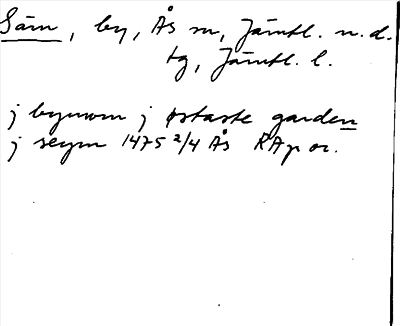 Säm, by, Ås sn, Jämtl. n. d.
tg, Jämtl. l.
j bynom j østaste garden
j seym 1475 2/4 Ås RAp or.